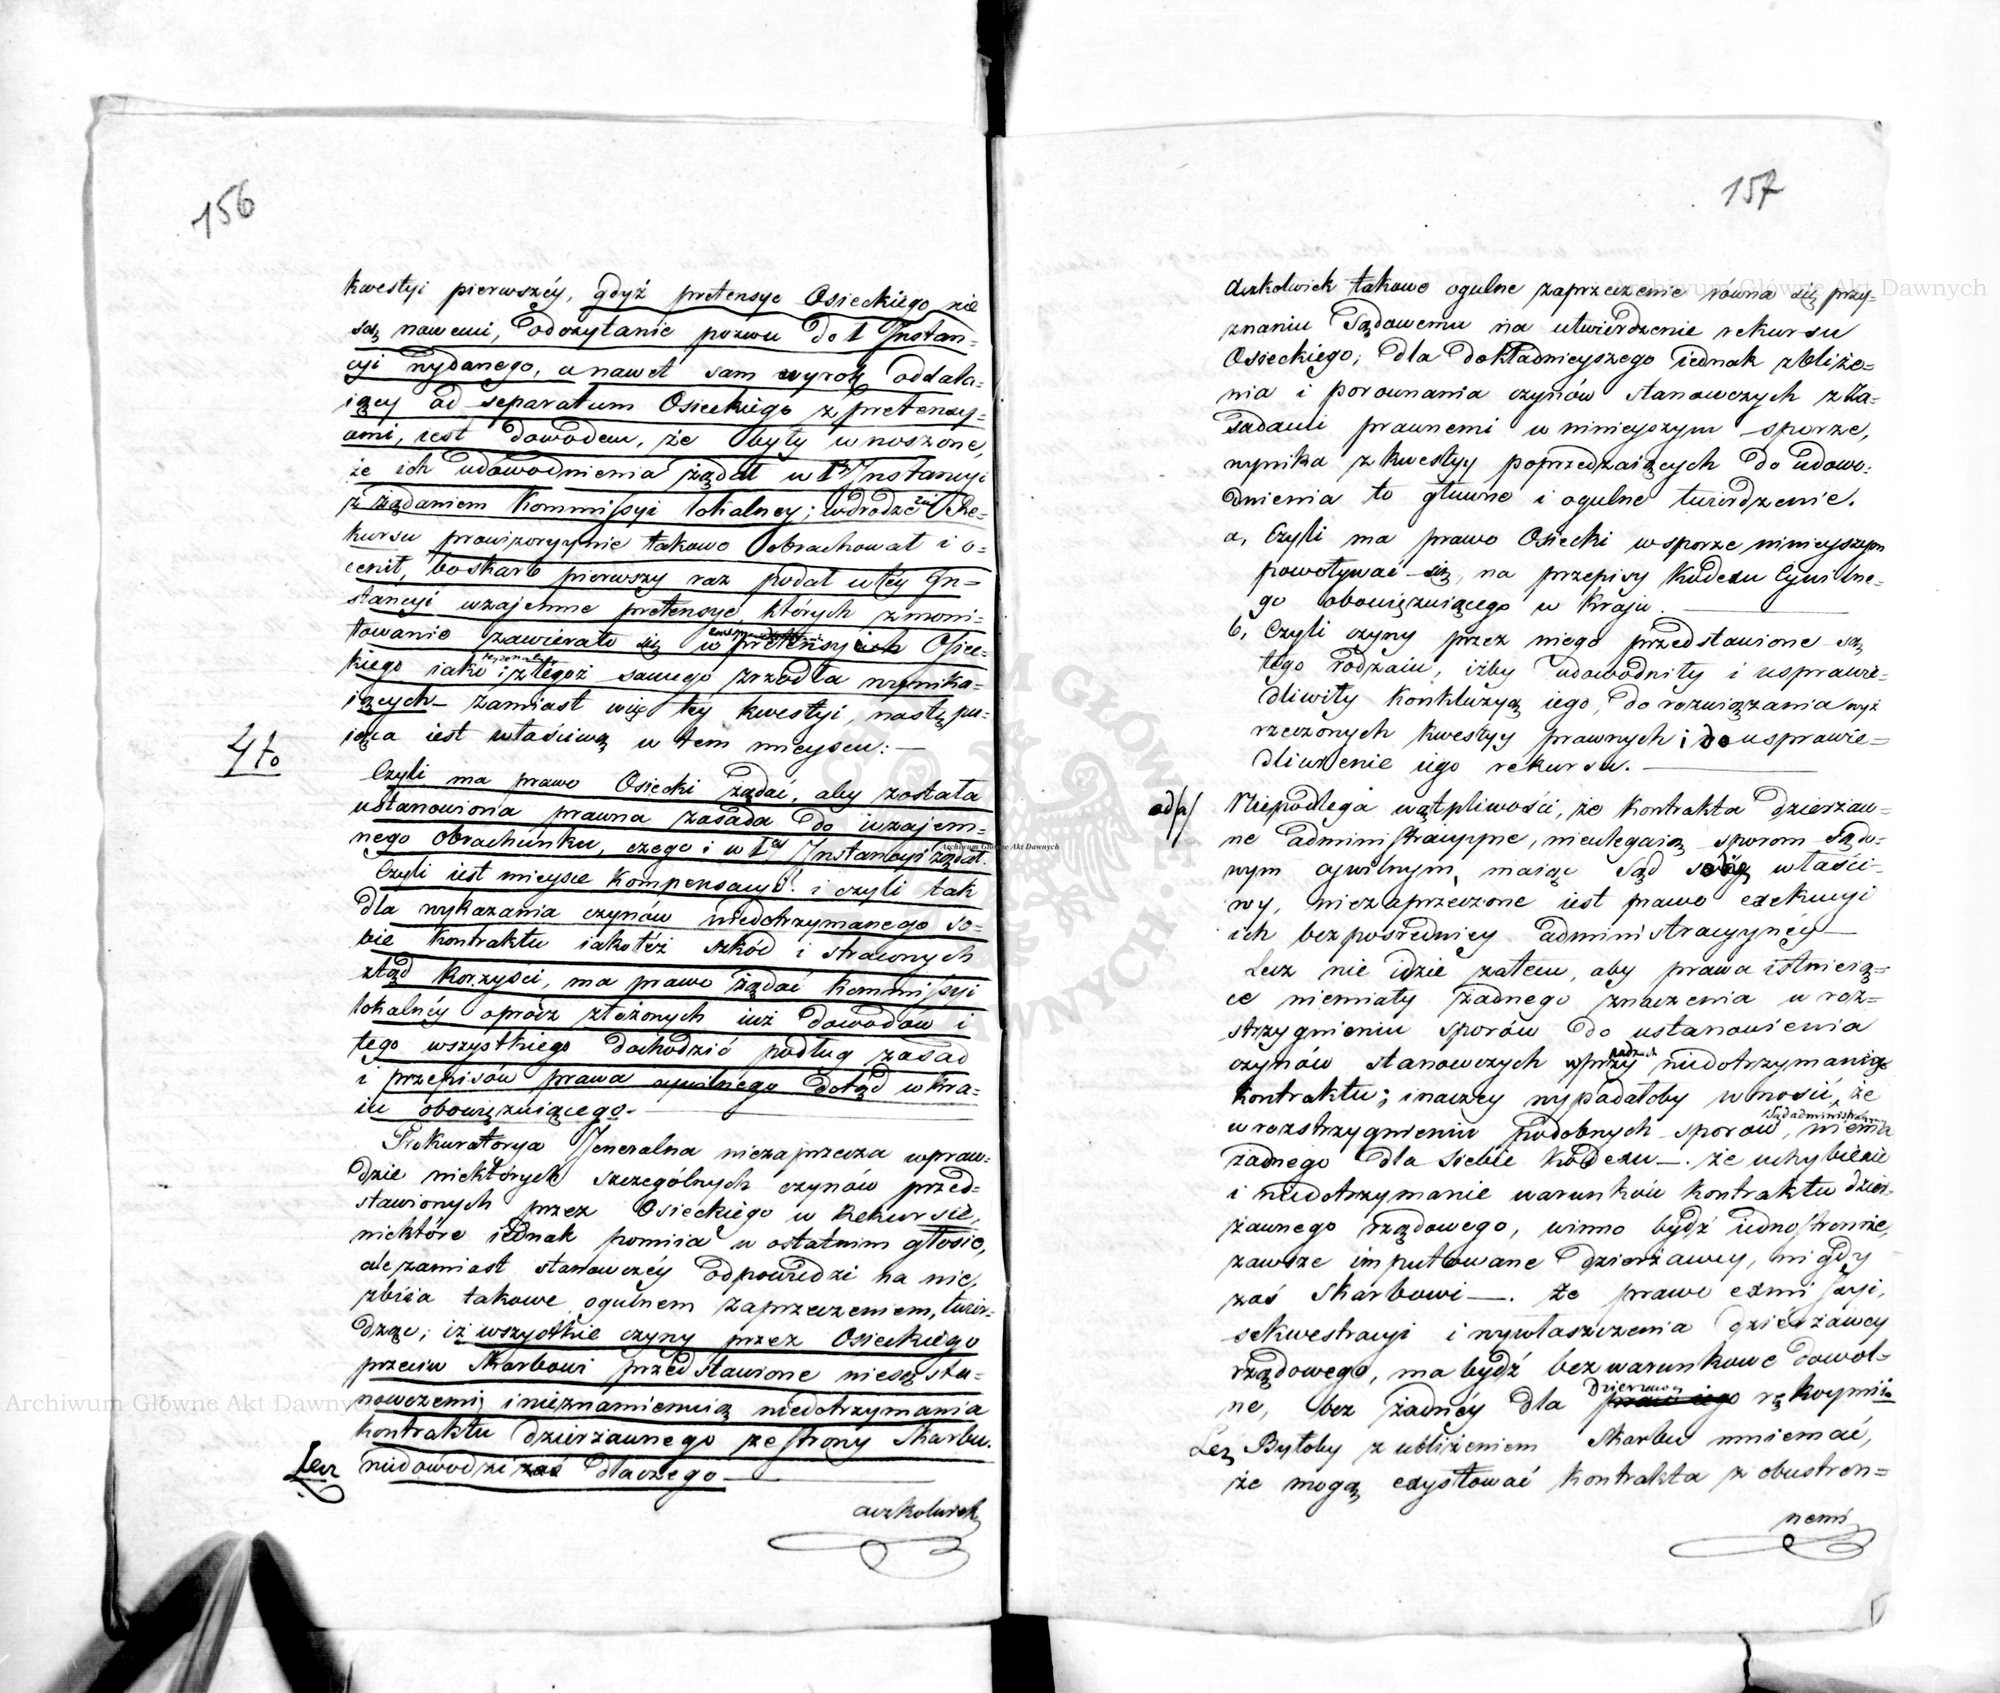 156
kwestyi pierwszéy, gdyż pretensye Osieckiego nie
są nowemi, odczytanie pozwu do I Instan-
cyi wydanego, a nawet sam wyrok oddala-
iący ad separatum Osieckiego z pretensy-
ami, iest dowodem, że były wnoszone,
że ich udowodnienia żądał w Iéy Instancyi
z żądaniem Kommissyi lokalney; wdrodze zaś Re-
kursu prowizorycznie takowe obrachował i o-
cenił, bo skarb pierwszy raz podał w téy In-
stancyi wzajemne pretensye, których zmoni-
towanie zawierało się w pretensyiach Osiec-
kiego iako i z tegoż samego zrzodła wynika-
iących – zamiast więc téy kwestyi, nastepu-
iąca iest właściwą w tem mieyscu: —
4to
Czyli ma prawo Osiecki żądać, aby została
ustanowiona prawna zasada do wzajem-
nego Obrachunku, czego i w Iéy Instancyi żądał.
Czyli iest mieysce Kompensacyi? i czyli tak
dla wykazania czynów niedotrzymanego so-
bie Kontraktu iakotéż szkód i straconych
ztąd Korzyści, ma prawo żądać Kommissyi
lokalnéy oprócz złożonych iuż dowodów i
tego wszystkiego dochodzić podług zasad
i przepisów prawa cywilnego dotąd w kra-
iu obowięzuiącego. —
Prokuratorya Jeneralna niezaprzecza wpraw-
dzie niektórych szczególnych czynów przed-
stawionych przez Osieckiego w Rekursie,
niektóre iednak pomiia w ostatnim głosie,
ale zamiast stanowczéy odpowiedzi na nie,
zbiia takowe ogulnem zaprzeczeniem, twier-
dząc; iż wszystkie czyny przez Osieckiego
przeciw Skarbowi przedstawione niesą sta-
nowczemi; i nieznamienuią niedotrzymania
kontraktu dzierżawnego ze strony Skarbu.
Lecz niedowodzi zaś dlaczego —
aczkolwiek
157
Aczkolwiek takowe ogulne zaprzeczenie równa się przy-
znaniu Sądowemu na utwierdzenie rekursu
Osieckiego; dla dokładnieyszego iednak zbliże-
nia i porownania czynów stanowczych z Za-
sadami prawnemi w ninieyszym sporze,
wynika z kwestyy poprzedzaiących do udowo-
dnienia to głuwne i ogulne twierdzenie.
a, Czyli ma prawo Osiecki wsporze ninieyszym
powoływać się, na przepisy Kodexu Cywilne-
go obowięzuiącego w Kraju. —
b, Czyli czyny przez niego przedstawione są
tego rodzaiu, iżby udowodniły i usprawie-
dliwiły konkluzyą iego, do rozwiązania wyż
rzeczonych kwestyy prawnych i do usprawie-
dliwienie iego rekursu. —
ad/a/ Niepodlega wątpliwości, że kontrakta dzierżaw-
ne administracyjne, nieulegaią sporom Sądo-
wym cywilnym, maiąc Sąd sobie właści-
wy, niezaprzeczone iest prawo exekucyi
ich bezpośredniey administracyjnéy —
Lecz nie idzie zatem, aby prawa istnieią-
ce niemiały żadnego znaczenia w roz-
strzygnieniu sporów do ustanowienia
czynów stanowczych przy niedotrzymaniu
kontraktu; inaczey wypadałoby wnosić, że
Sąd administracyiny
w rozstrzygnieniu podobnych sporów, niema
żadnego dla siebie Kodexu —. że uchybienie
i niedotrzymanie warunków kontraktu dzier-
żawnego rządowego, winno bydź iednostronnie,
zawsze imputowane dzierżawcy, nigdy
zaś Skarbowi —. Że prawo exmissyi,
sekwestracyi i wywłaszczenia dzierżawcy
rządowego, ma bydź bezwarunkowe dowol-
ne, bez żadnéy dla Dzierżawcy rękoymii.
Lecz Byłoby z ubliżeniem Skarbu mniemać,
że mogą exystować kontrakta z obustron-
nemi
Archiwum Główne Akt Dawnych
Archiwum Główne Akt Dawnych
Archiwum Główne Akt Dawnych